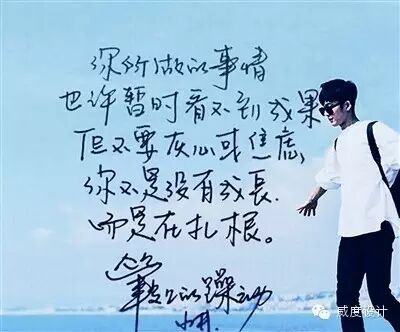 你所做的事情
也许暂时看不到成果
但不要灰心或焦虑,
你不是没有成長.
而是在扎根。
的躁动
威度设计